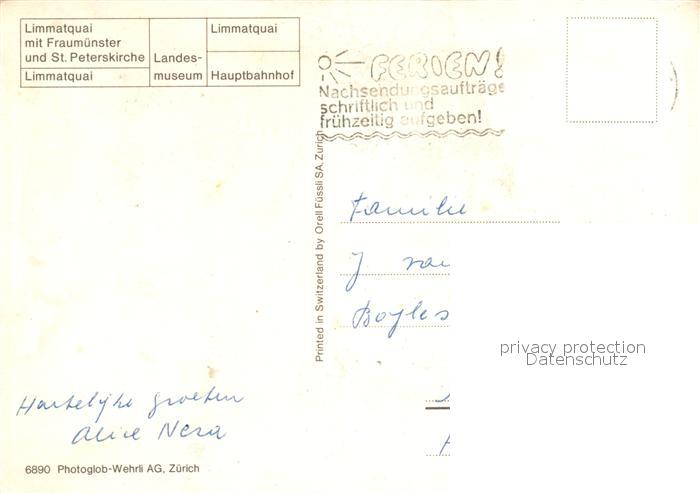 Limmatquai
mit Fraumünster
und St. Peterskirche
Limmatquai
Landes-
museum
Limmatquai
Hauptbahnhof
FERIEN!
Nachsendungsaufträge
schriftlich und
frühzeitig aufgeben!
Printed in Switzerland by Orell Füssli SA, Zürich
Familie
J van
privacy protection
Datenschutz
Hartelijke groeten
Alice Nera
6890 Photoglob-Wehrli AG, Zürich